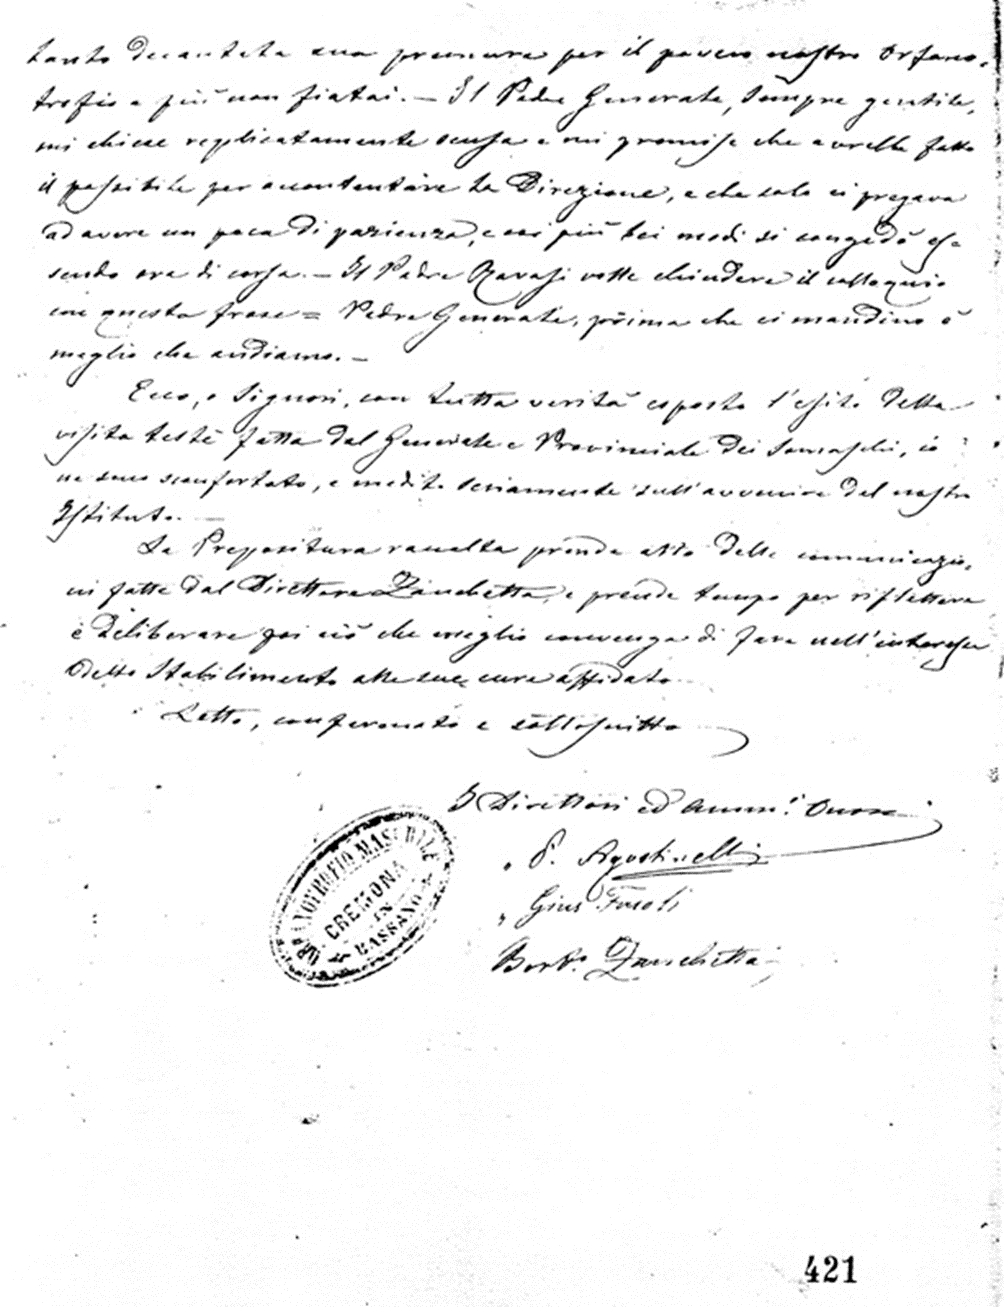 tanto decantata sua premura per il povero nostro Orfano-
trofio e più non fiatai. — Il Padre Generale, sempre gentile,
mi chiese replicatamente scusa e mi promise che avrebbe fatto
il possibile per accontentare la Direzione, e che solo ci pregava
ad avere un poca di pazienza, e coi più bei modi si congedò es-
sendo ora di corsa. — Il Padre Ravasi volle chiudere il colloquio
con questa frase = Padre Generale, prima che ci mandino è
meglio che andiamo. —
Ecco, o Signori, con tutta verità esposto l'esito della
visita testè fatta dal Generale e Provinciale dei Somaschi, io
ne sono sconfortato, e medito seriamente sull'avvenire del nostro
Istituto. —
La Prepositura raccolta prende atto delle comunicazio-
ni fatte dal Direttore Zanchetta, e prende tempo per riflettere
e deliberare poi ciò che meglio convenga di fare nell'interesse
dello Stabilimento alle sue cure affidato.
Letto, confermato e sottoscritto
I Direttori ed Amm.i Onor.
" P. Agostinelli
" Gius
Bort.o Zanchetta
ORFANOTROFIO MASCHILE
CREMONA
IN
BASSANO
421